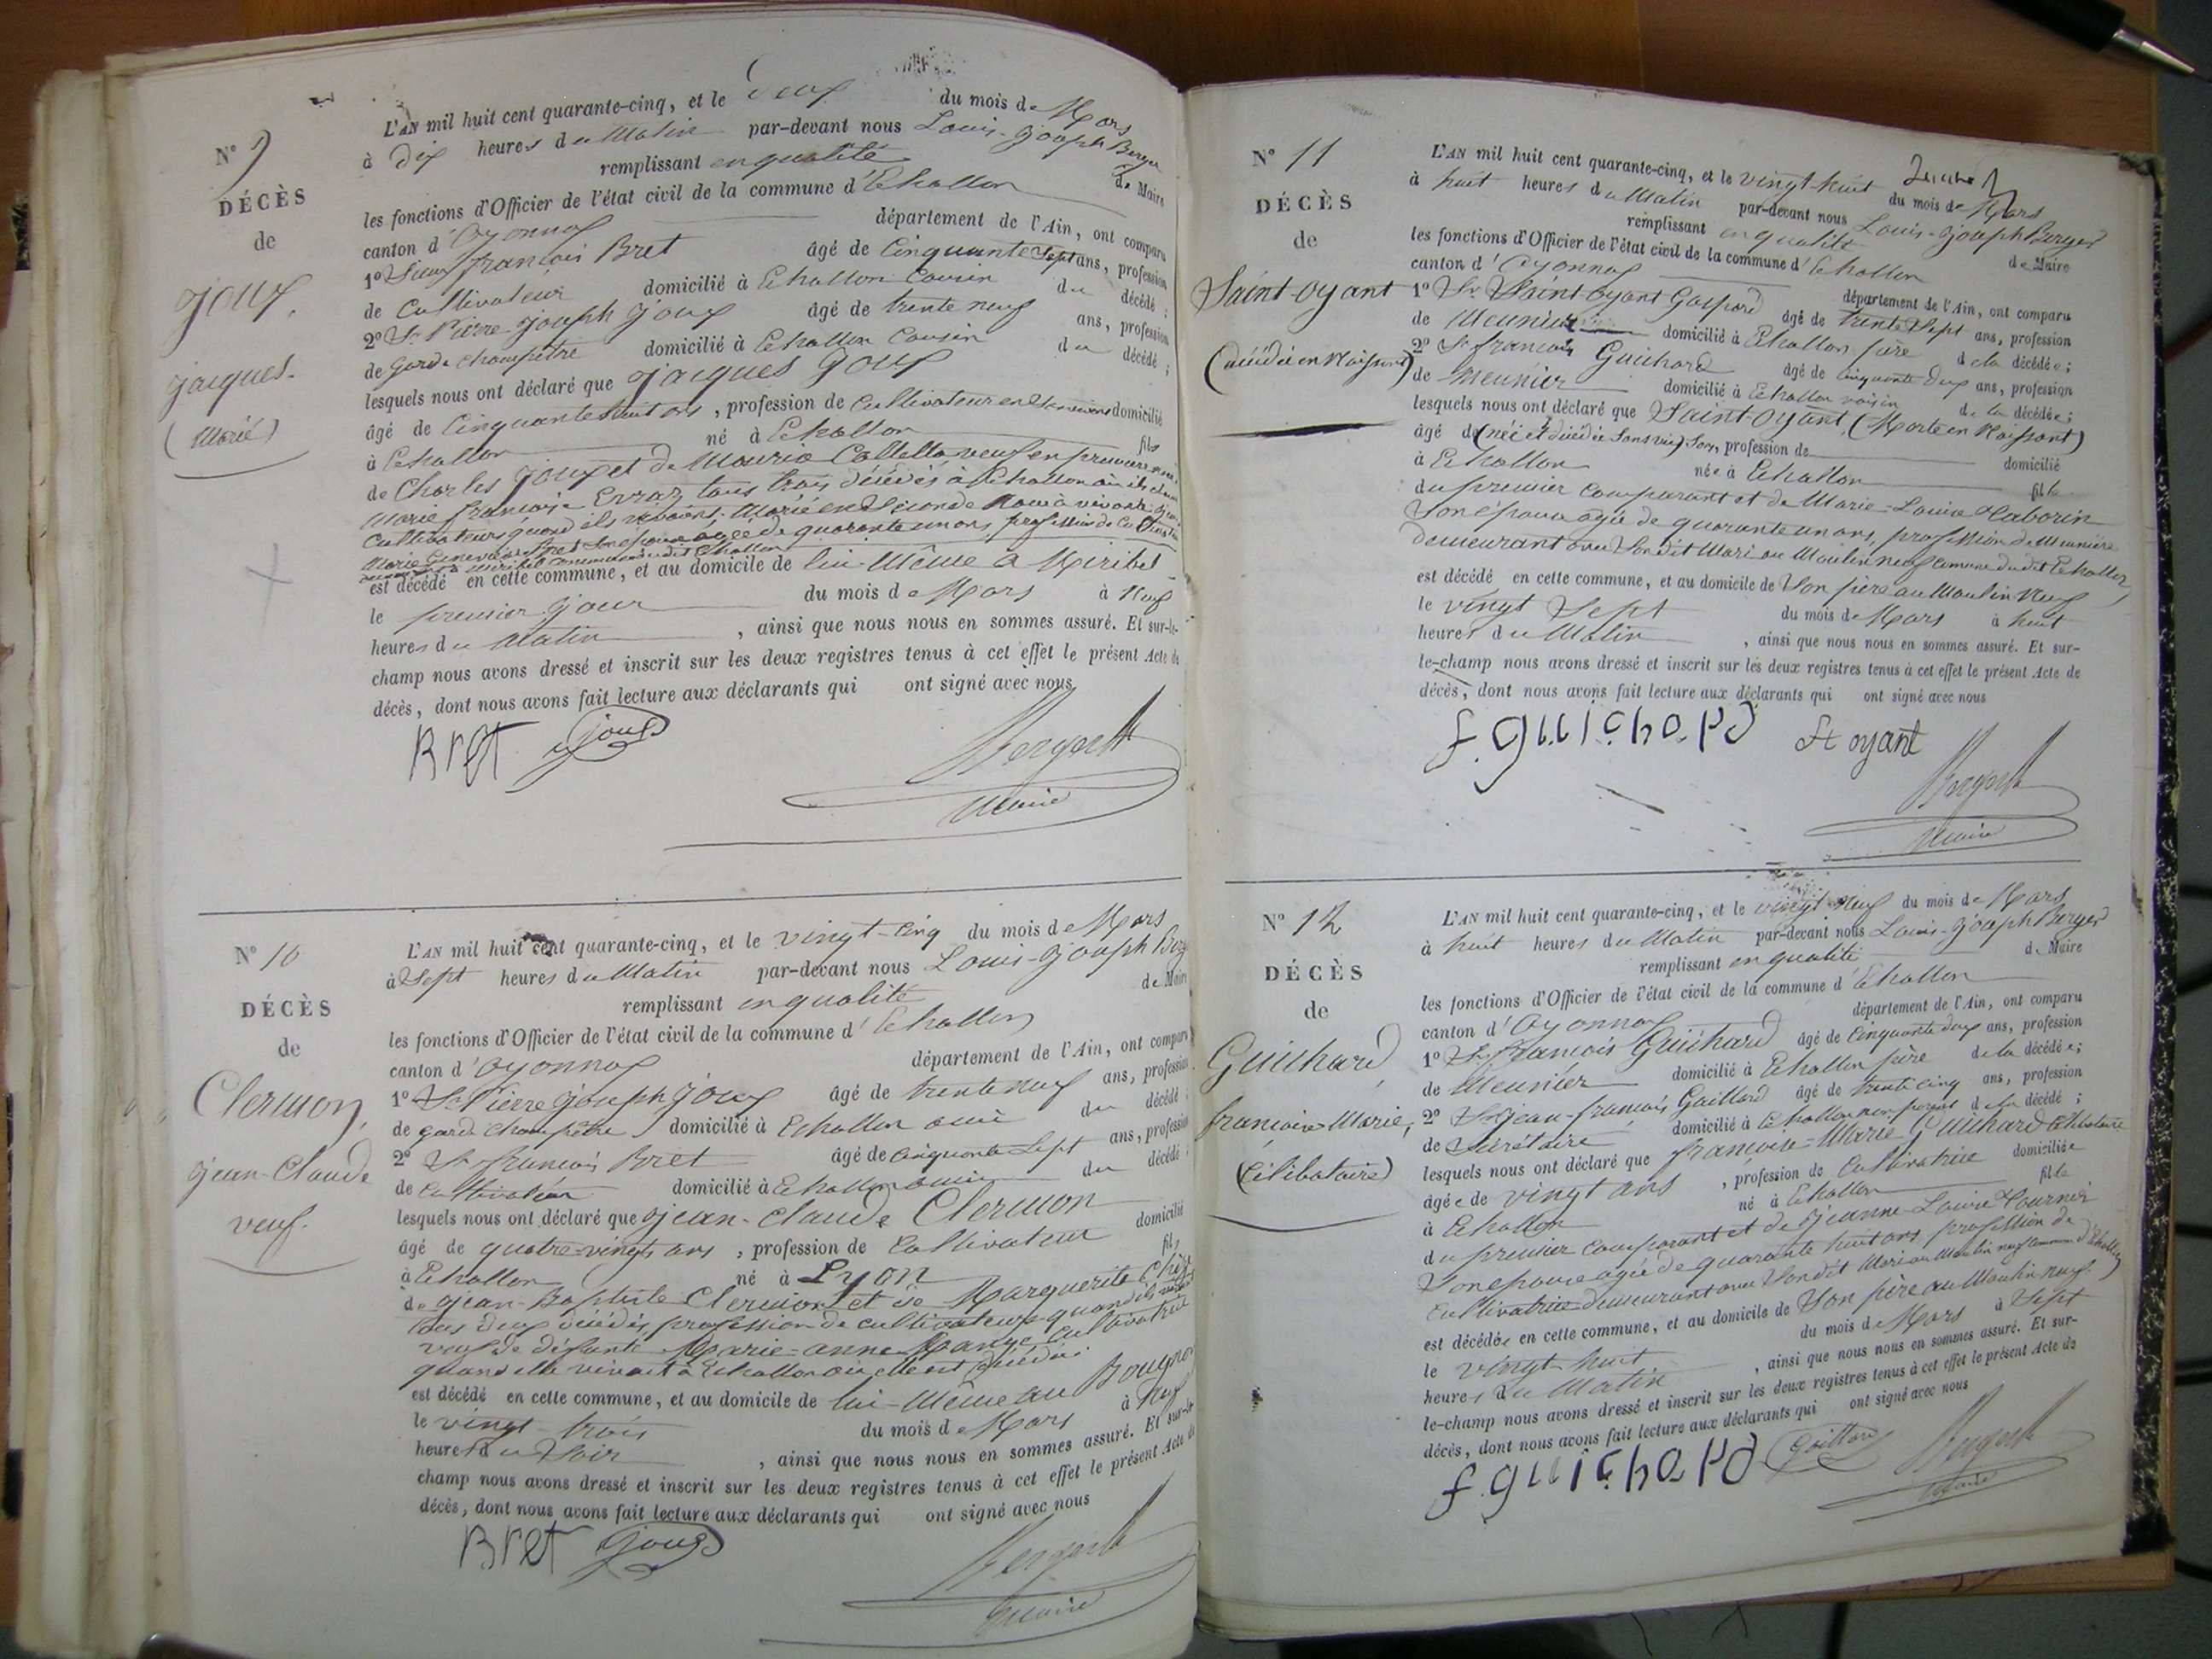 N° 9
DÉCÈS
de
Joux,
Jacques.
(Marié)
L'AN mil huit cent quarante-cinq, et le deux du mois de Mars
à dix heures du Matin par-devant nous Louis-Joseph Berger
remplissant en qualité de Maire
les fonctions d'Officier de l'état civil de la commune d'Echallon
canton d'Oyonnax département de l'Ain, ont comparu
1° Sieur françois Bret âgé de Cinquante Sept ans, profession
de Cultivateur domicilié à Echallon Cousin du décédé;
2° Sr Pierre-Joseph Joux âgé de trente neuf ans, profession
de Garde champêtre domicilié à Echallon Cousin du décédé;
lesquels nous ont déclaré que Jacques Joux
âgé de Cinquante huit ans, profession de Cultivateur en domicilié
à Echallon né à Echallon fils
de Charles Joux et de veuf en
Marie françoise tous trois décédés à Echallon
Cultivateurs quand ils vivaient. Marié en Seconde
Marie Son épouse agée de quarante un ans, profession de
Miribel Commune dudit Echallon
est décédé en cette commune, et au domicile de lui-Même à Miribel
le premier jour du mois de Mars à Neuf
heures du Matin, ainsi que nous nous en sommes assuré. Et sur-le-
champ nous avons dressé et inscrit sur les deux registres tenus à cet effet le présent Acte de
décès, dont nous avons fait lecture aux déclarants qui ont signé avec nous
Bret Joux Berger
Maire
N° 10
DÉCÈS
de
Clermon,
Jean-Claude
veuf.
L'AN mil huit cent quarante-cinq, et le vingt-cinq du mois de Mars
à Sept heures du Matin par-devant nous Louis-Joseph Berger
remplissant en qualité de Maire
les fonctions d'Officier de l'état civil de la commune d'Echallon
canton d'Oyonnax département de l'Ain, ont comparu
1° Sr Pierre Joseph Joux âgé de trente neuf ans, profession
de garde champêtre domicilié à Echallon ami du décédé;
2° Sr françois Bret âgé de Cinquante Sept ans, profession
de Cultivateur domicilié à Echallon ami du décédé;
lesquels nous ont déclaré que Jean-Claude Clermon
âgé de quatre-vingts ans, profession de Cultivateur domicilié
à Echallon né à Lyon fils
de Jean-Baptiste Clermont et de Marguerite
tous deux décédés profession de cultivateurs quand ils
veuf de défunte Marie-anne Cultivatrice
quand elle vivait à Echallon où elle est décédée.
est décédé en cette commune, et au domicile de lui-Même au
le vingt-trois du mois de Mars à Neuf
heures du Soir, ainsi que nous nous en sommes assuré. Et sur-le-
champ nous avons dressé et inscrit sur les deux registres tenus à cet effet le présent Acte de
décès, dont nous avons fait lecture aux déclarants qui ont signé avec nous
Bret Joux Berger
Maire
N° 11
DÉCÈS
de
Saint-oyant
(décédée en Naissant)
L'AN mil huit cent quarante-cinq, et le vingt-huit du mois de Mars
à huit heures du Matin par-devant nous Louis-Joseph Berger
remplissant en qualité de Maire
les fonctions d'Officier de l'état civil de la commune d'Echallon
canton d'Oyonnax département de l'Ain, ont comparu
1° Sr Saint-oyant Gaspard âgé de trente Sept ans, profession
de Meunier domicilié à Echallon père de la décédée;
2° Sr françois Guichard âgé de Cinquante deux ans, profession
de Meunier domicilié à Echallon voisin de la décédée;
lesquels nous ont déclaré que Saint-oyant, (Morte en Naissant)
âgé de (née et décédée Sans vie) ans, profession de domicilié
à Echallon née à Echallon fille
du premier Comparant et de Marie-Louise
Son épouse agée de quarante un ans, profession de Meunière
Demeurant avec Son dit Mari au Moulin neuf Commune dudit Echallon
est décédé en cette commune, et au domicile de Son père au Moulin Neuf
le vingt Sept du mois de Mars à huit
heures du Matin, ainsi que nous nous en sommes assuré. Et sur-
le-champ nous avons dressé et inscrit sur les deux registres tenus à cet effet le présent Acte de
décès, dont nous avons fait lecture aux déclarants qui ont signé avec nous
f. guichard St oyant
Berger
Maire
N° 12
DÉCÈS
de
Guichard,
françoise Marie,
(Célibataire)
L'AN mil huit cent quarante-cinq, et le vingt-neuf du mois de Mars
à huit heures du Matin par-devant nous Louis-Joseph Berger
remplissant en qualité de Maire
les fonctions d'Officier de l'état civil de la commune d'Echallon
canton d'Oyonnax département de l'Ain, ont comparu
1° Sr françois Guichard âgé de Cinquante deux ans, profession
de Meunier domicilié à Echallon père de la décédée;
2° Sr Jean-françois Gaillard âgé de trente cinq ans, profession
de Secrétaire domicilié à Echallon non parent de la décédé;
lesquels nous ont déclaré que françoise-Marie Guichard Célibataire
âgée de vingt ans, profession de Cultivatrice domiciliée
à Echallon né à Echallon fille
du premier Comparant et de Jeanne-Louise
Son épouse agée de quarante huit ans profession de
Cultivatrice demeurant avec Son dit Mari au Moulin neuf Commune d'Echallon
est décédée en cette commune, et au domicile de Son père au Moulin neuf.
le vingt-huit du mois de Mars à Sept
heures du Matin, ainsi que nous nous en sommes assuré. Et sur-
le-champ nous avons dressé et inscrit sur les deux registres tenus à cet effet le présent Acte de
décès, dont nous avons fait lecture aux déclarants qui ont signé avec nous
f. guichard Gaillard Berger
Maire